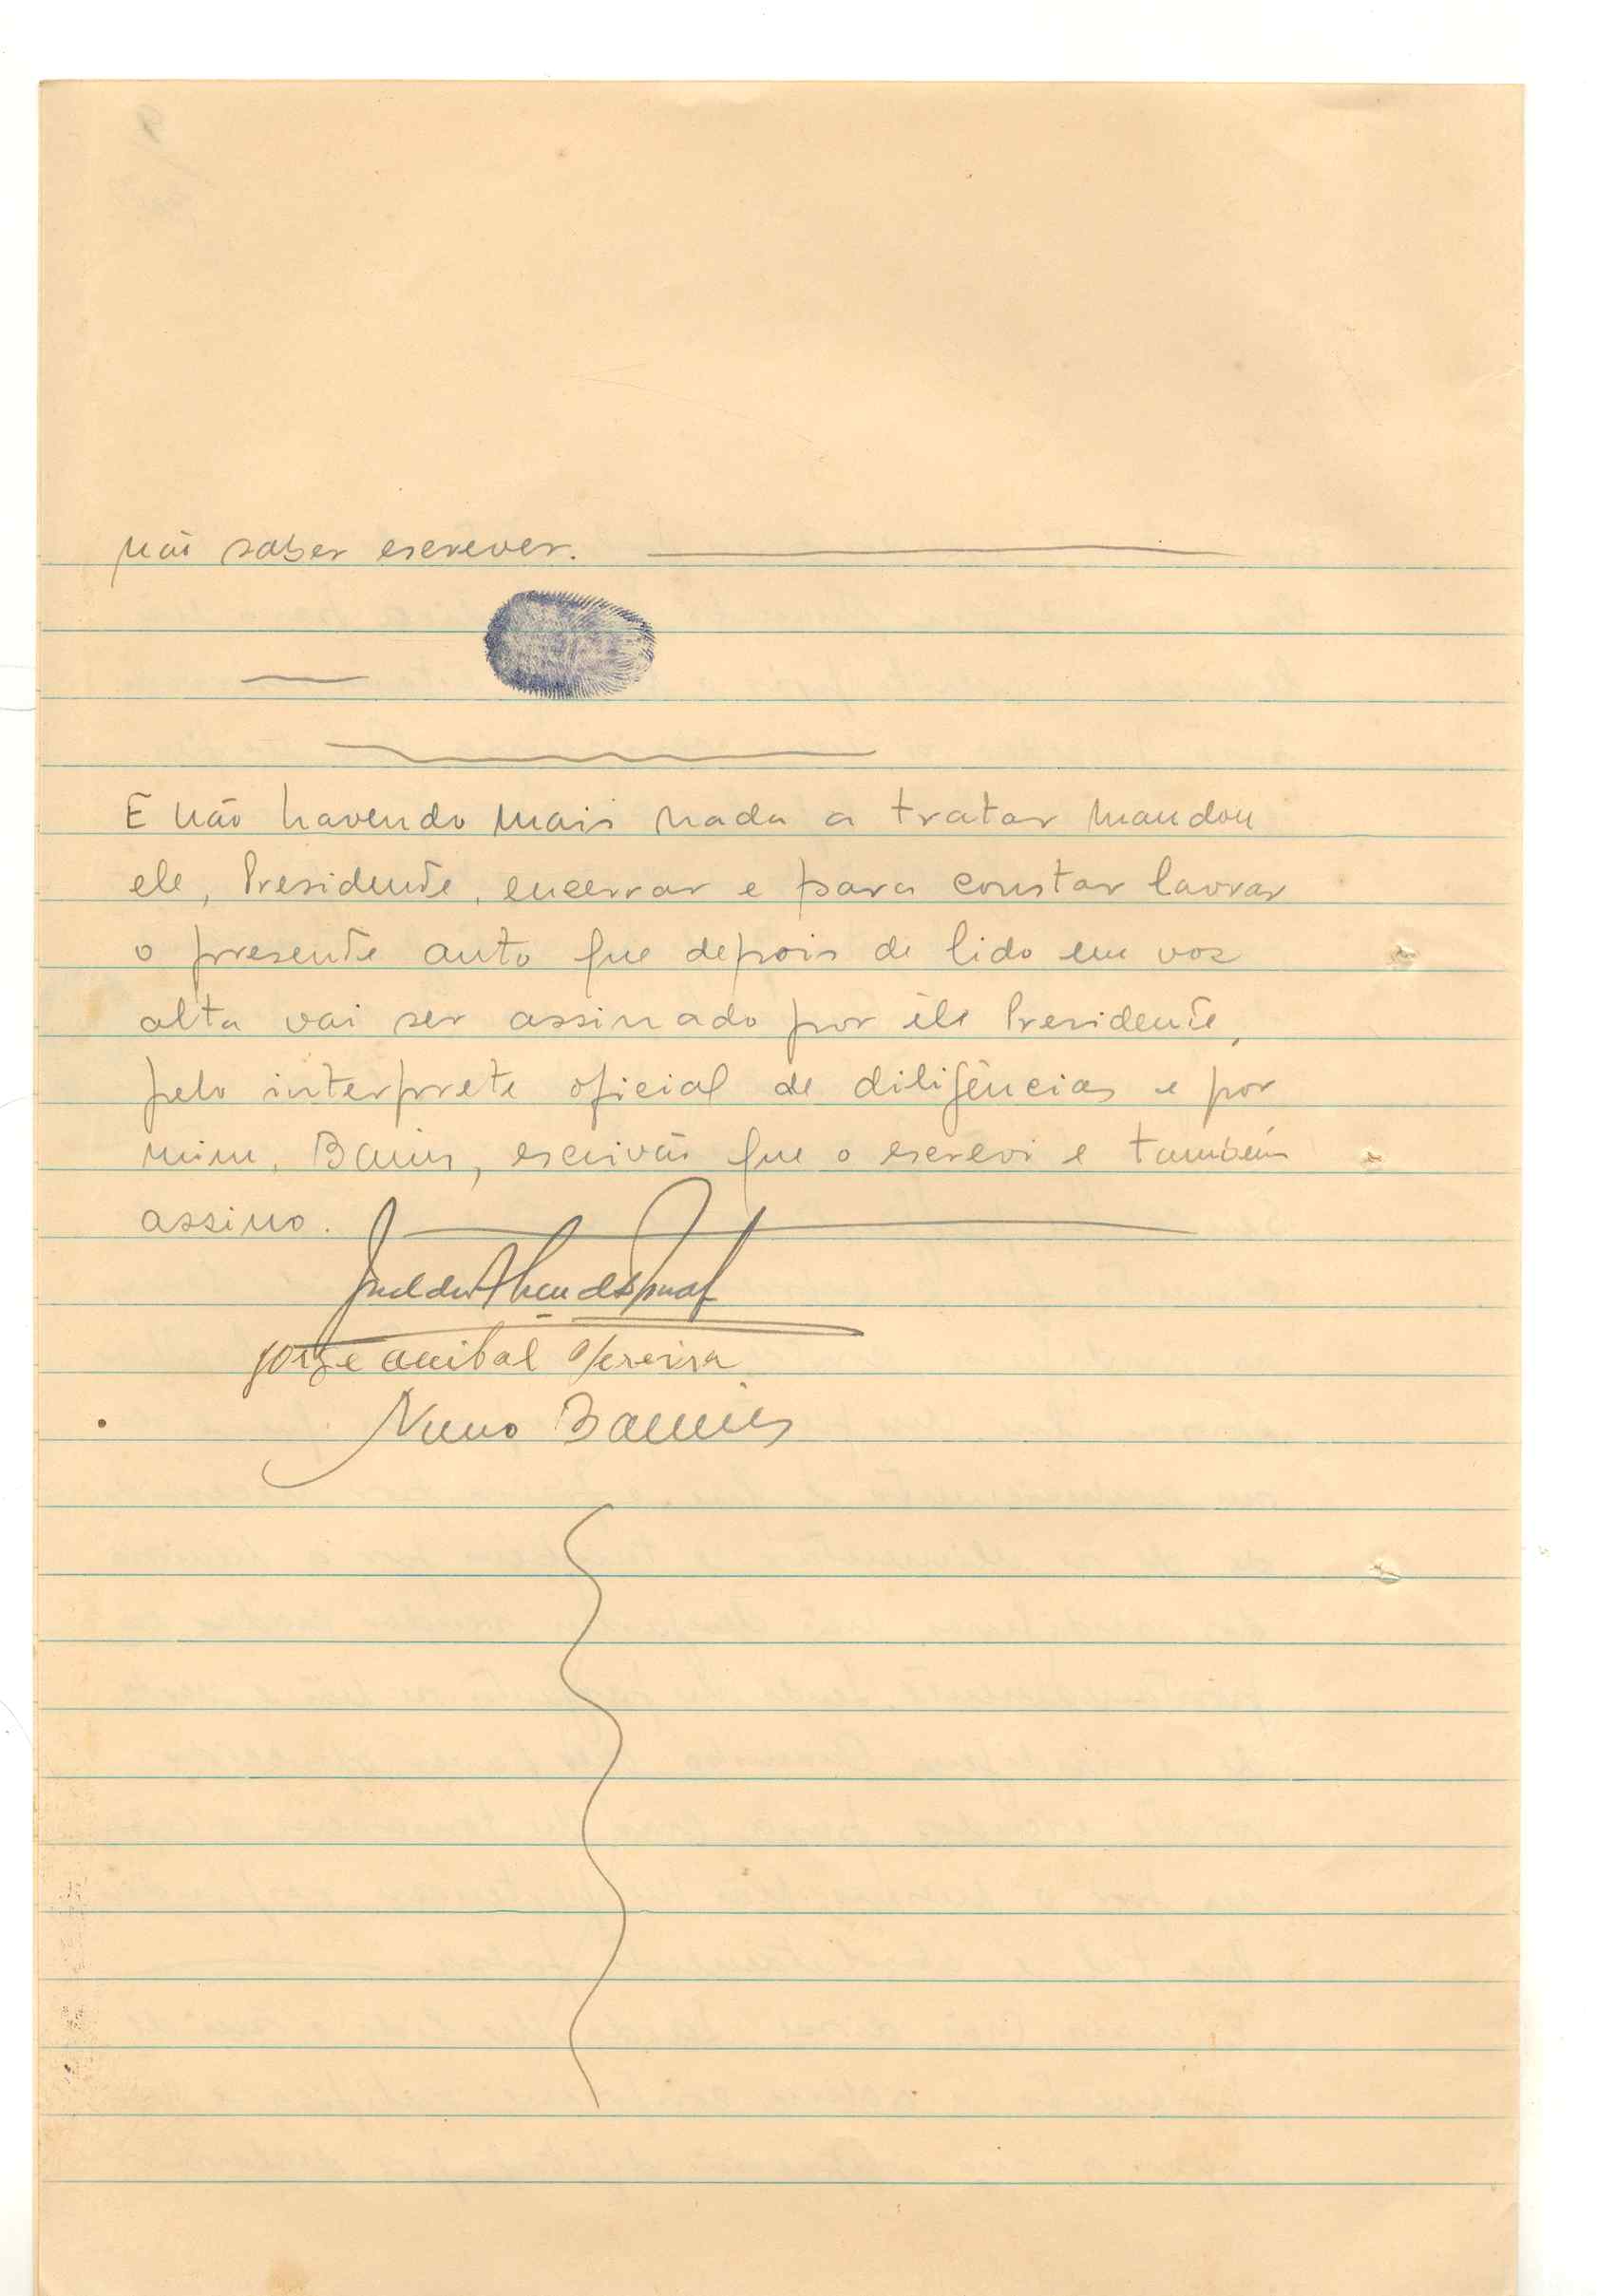 não saber escrever.
E não havendo mais nada a tratar mandou
ele, Presidente, encerrar e para constar lavrar
o presente auto que depois de lido em voz
alta vai ser assinado por êle Presidente,
pelo interprete oficial de diligências e por
mim, escrivão que o escrevi e também
assino.
Jorge Anibal Pereira
Nuno